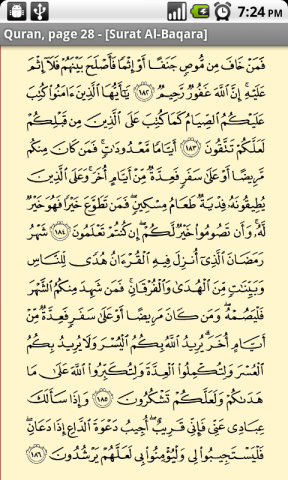 7:24 PM
Quran, page 28 - [Surat Al-Baqara]
فَمَنْ خَافَ مِن مُّوصٍ جَنَفًا أَوْ إِثْمًا فَأَصْلَحَ بَيْنَهُمْ فَلَآ إِثْمَ
عَلَيْهِ إِنَّ ٱللَّهَ غَفُورٌ رَّحِيمٌ ١٨٢ يَٰٓأَيُّهَا ٱلَّذِينَ ءَامَنُوا۟ كُتِبَ
عَلَيْكُمُ ٱلصِّيَامُ كَمَا كُتِبَ عَلَى ٱلَّذِينَ مِن قَبْلِكُمْ
لَعَلَّكُمْ تَتَّقُونَ ١٨٣ أَيَّامًا مَّعْدُودَٰتٍ فَمَن كَانَ مِنكُم
مَّرِيضًا أَوْ عَلَىٰ سَفَرٍ فَعِدَّةٌ مِّنْ أَيَّامٍ أُخَرَ وَعَلَى ٱلَّذِينَ
يُطِيقُونَهُۥ فِدْيَةٌ طَعَامُ مِسْكِينٍ فَمَن تَطَوَّعَ خَيْرًا فَهُوَ خَيْرٌ
لَّهُۥ وَأَن تَصُومُوا۟ خَيْرٌ لَّكُمْ إِن كُنتُمْ تَعْلَمُونَ ١٨٤ شَهْرُ
رَمَضَانَ ٱلَّذِىٓ أُنزِلَ فِيهِ ٱلْقُرْءَانُ هُدًى لِّلنَّاسِ
وَبَيِّنَٰتٍ مِّنَ ٱلْهُدَىٰ وَٱلْفُرْقَانِ فَمَن شَهِدَ مِنكُمُ ٱلشَّهْرَ
فَلْيَصُمْهُ وَمَن كَانَ مَرِيضًا أَوْ عَلَىٰ سَفَرٍ فَعِدَّةٌ مِّنْ
أَيَّامٍ أُخَرَ يُرِيدُ ٱللَّهُ بِكُمُ ٱلْيُسْرَ وَلَا يُرِيدُ بِكُمُ
ٱلْعُسْرَ وَلِتُكْمِلُوا۟ ٱلْعِدَّةَ وَلِتُكَبِّرُوا۟ ٱللَّهَ عَلَىٰ مَا
هَدَىٰكُمْ وَلَعَلَّكُمْ تَشْكُرُونَ ١٨٥ وَإِذَا سَأَلَكَ
عِبَادِى عَنِّى فَإِنِّى قَرِيبٌ أُجِيبُ دَعْوَةَ ٱلدَّاعِ إِذَا دَعَانِ
فَلْيَسْتَجِيبُوا۟ لِى وَلْيُؤْمِنُوا۟ بِى لَعَلَّهُمْ يَرْشُدُونَ ١٨٦